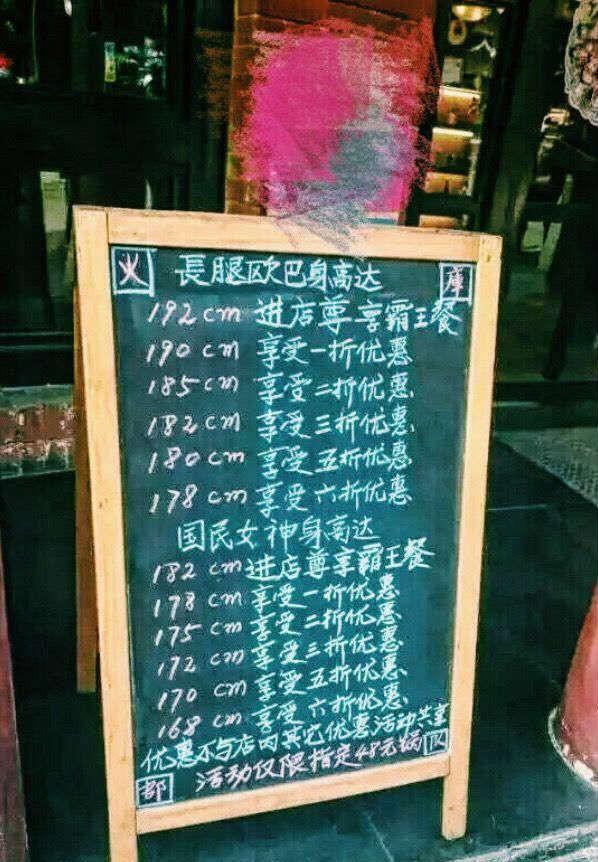 火 長腿欧巴身高达 庫
192cm 进店尊享霸王餐
190cm 享受一折优惠
185cm 享受二折优惠
182cm 享受三折优惠
180cm 享受五折优惠
178cm 享受六折优惠
国民女神身高达
182cm 进店尊享霸王餐
178cm 享受一折优惠
175cm 享受二折优惠
172cm 享受三折优惠
170cm 享受五折优惠
168cm 享受六折优惠
优惠不与店内其它优惠活动共享
部 活动仅限指定48元锅 队